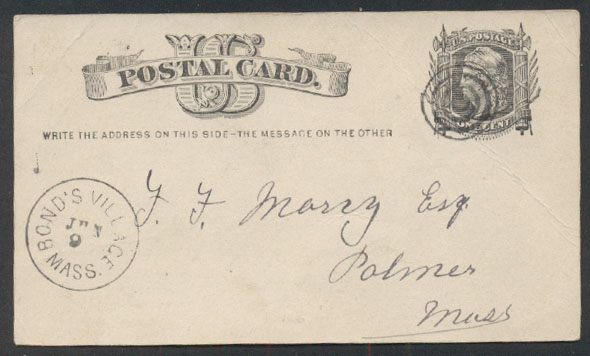 US
POSTAL CARD.
U.S. POSTAGE
ONE CENT
WRITE THE ADDRESS ON THIS SIDE–THE MESSAGE ON THE OTHER
BOND'S VILLAGE
9
MASS.
F. F. Marcy Esq.
Palmer
Mass